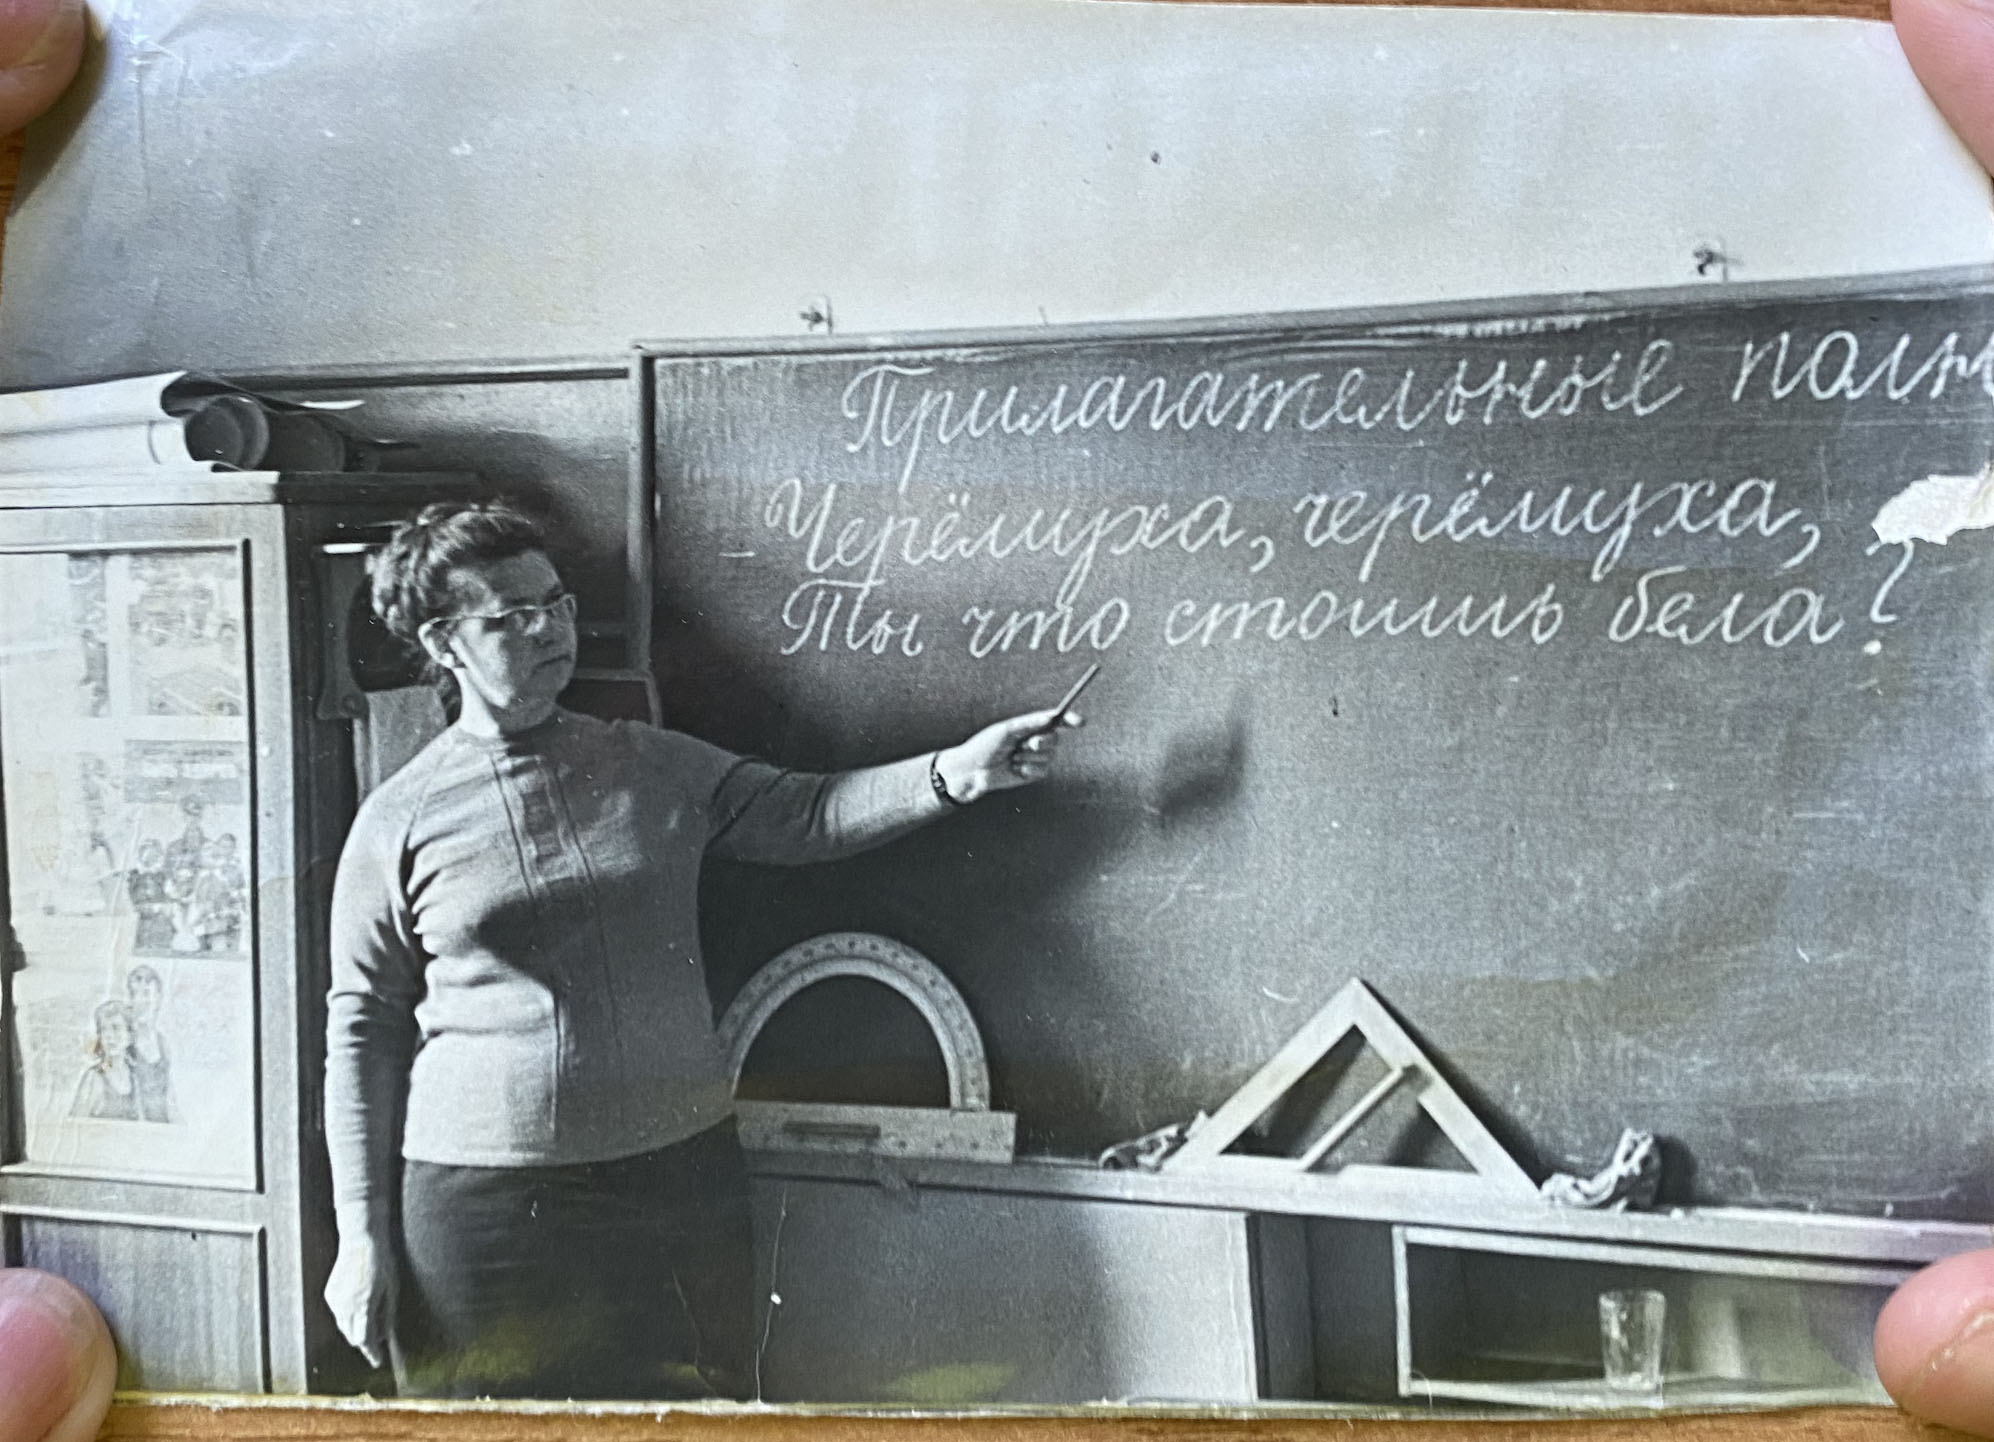 Прилагательные
Черёмуха, черёмуха,
Ты что стоишь бела?